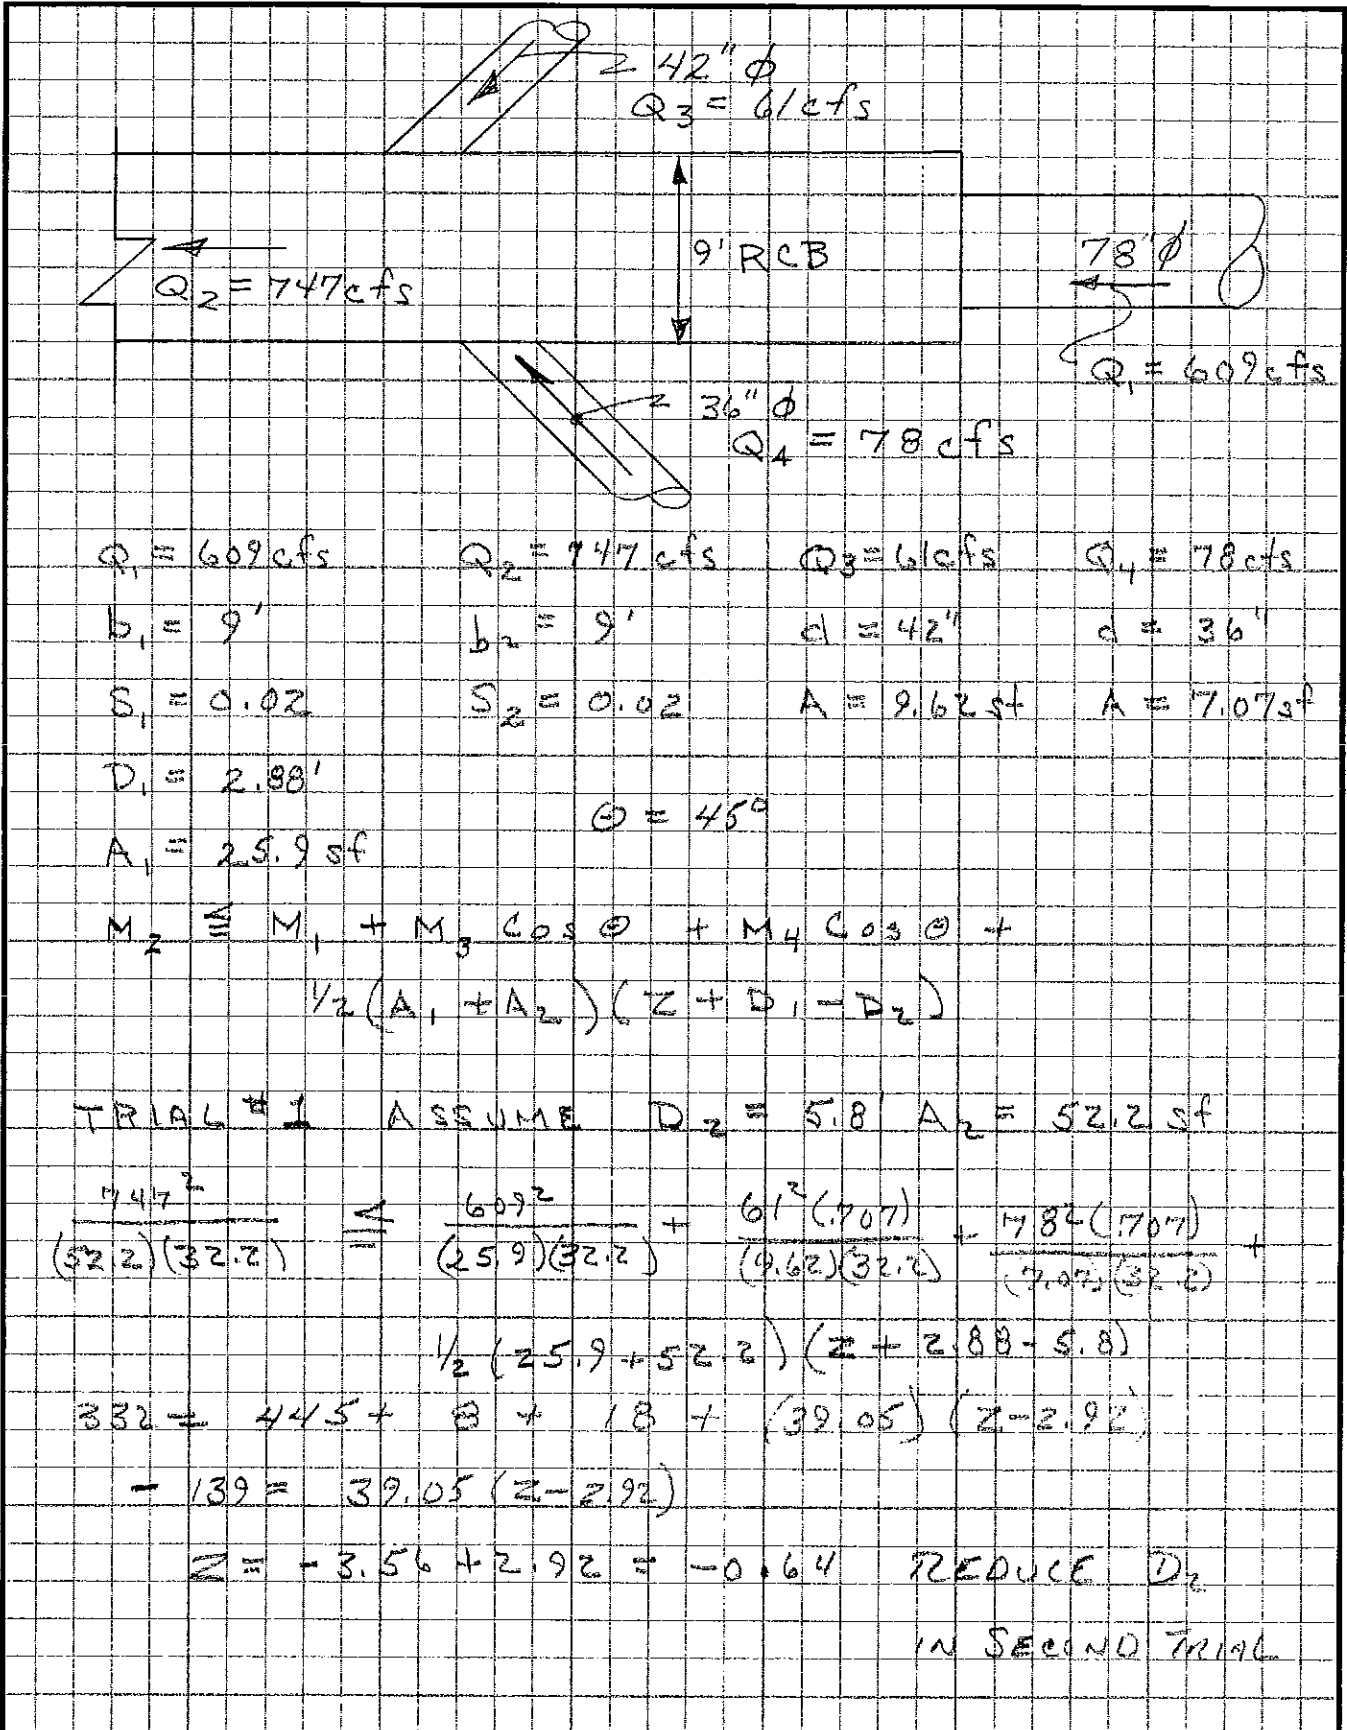 42" ϕ
Q3 = 61 cfs
9' RCB
78" ϕ
Q2 = 747 cfs
Q1 = 609 cfs
36" ϕ
Q4 = 78 cfs
Q1 = 609 cfs Q2 = 747 cfs Q3 = 61 cfs Q4 = 78 cfs
b1 = 9' b2 = 9' d = 42" d = 36"
S1 = 0.02 S2 = 0.02 A = 9.62 sf A = 7.07 sf
D1 = 2.88'
Θ = 45°
A1 = 25.9 sf
M2 ≦ M1 + M3 Cos Θ + M4 Cos Θ +
1/2 (A1 + A2) (Z + D1 - D2)
TRIAL #1 ASSUME D2 = 5.8' A2 = 52.2 sf
747² / (52.2)(32.2) ≦ 609² / (25.9)(32.2) + 61² (.707) / (9.62)(32.2) + 78² (.707) / (7.07)(32.2) +
1/2 (25.9 + 52.2) (Z + 2.88 - 5.8)
332 = 445 + 8 + 18 + (39.05) (Z - 2.92)
- 139 = 39.05 (Z - 2.92)
Z = - 3.56 + 2.92 = - 0.64 REDUCE D2
IN SECOND TRIAL